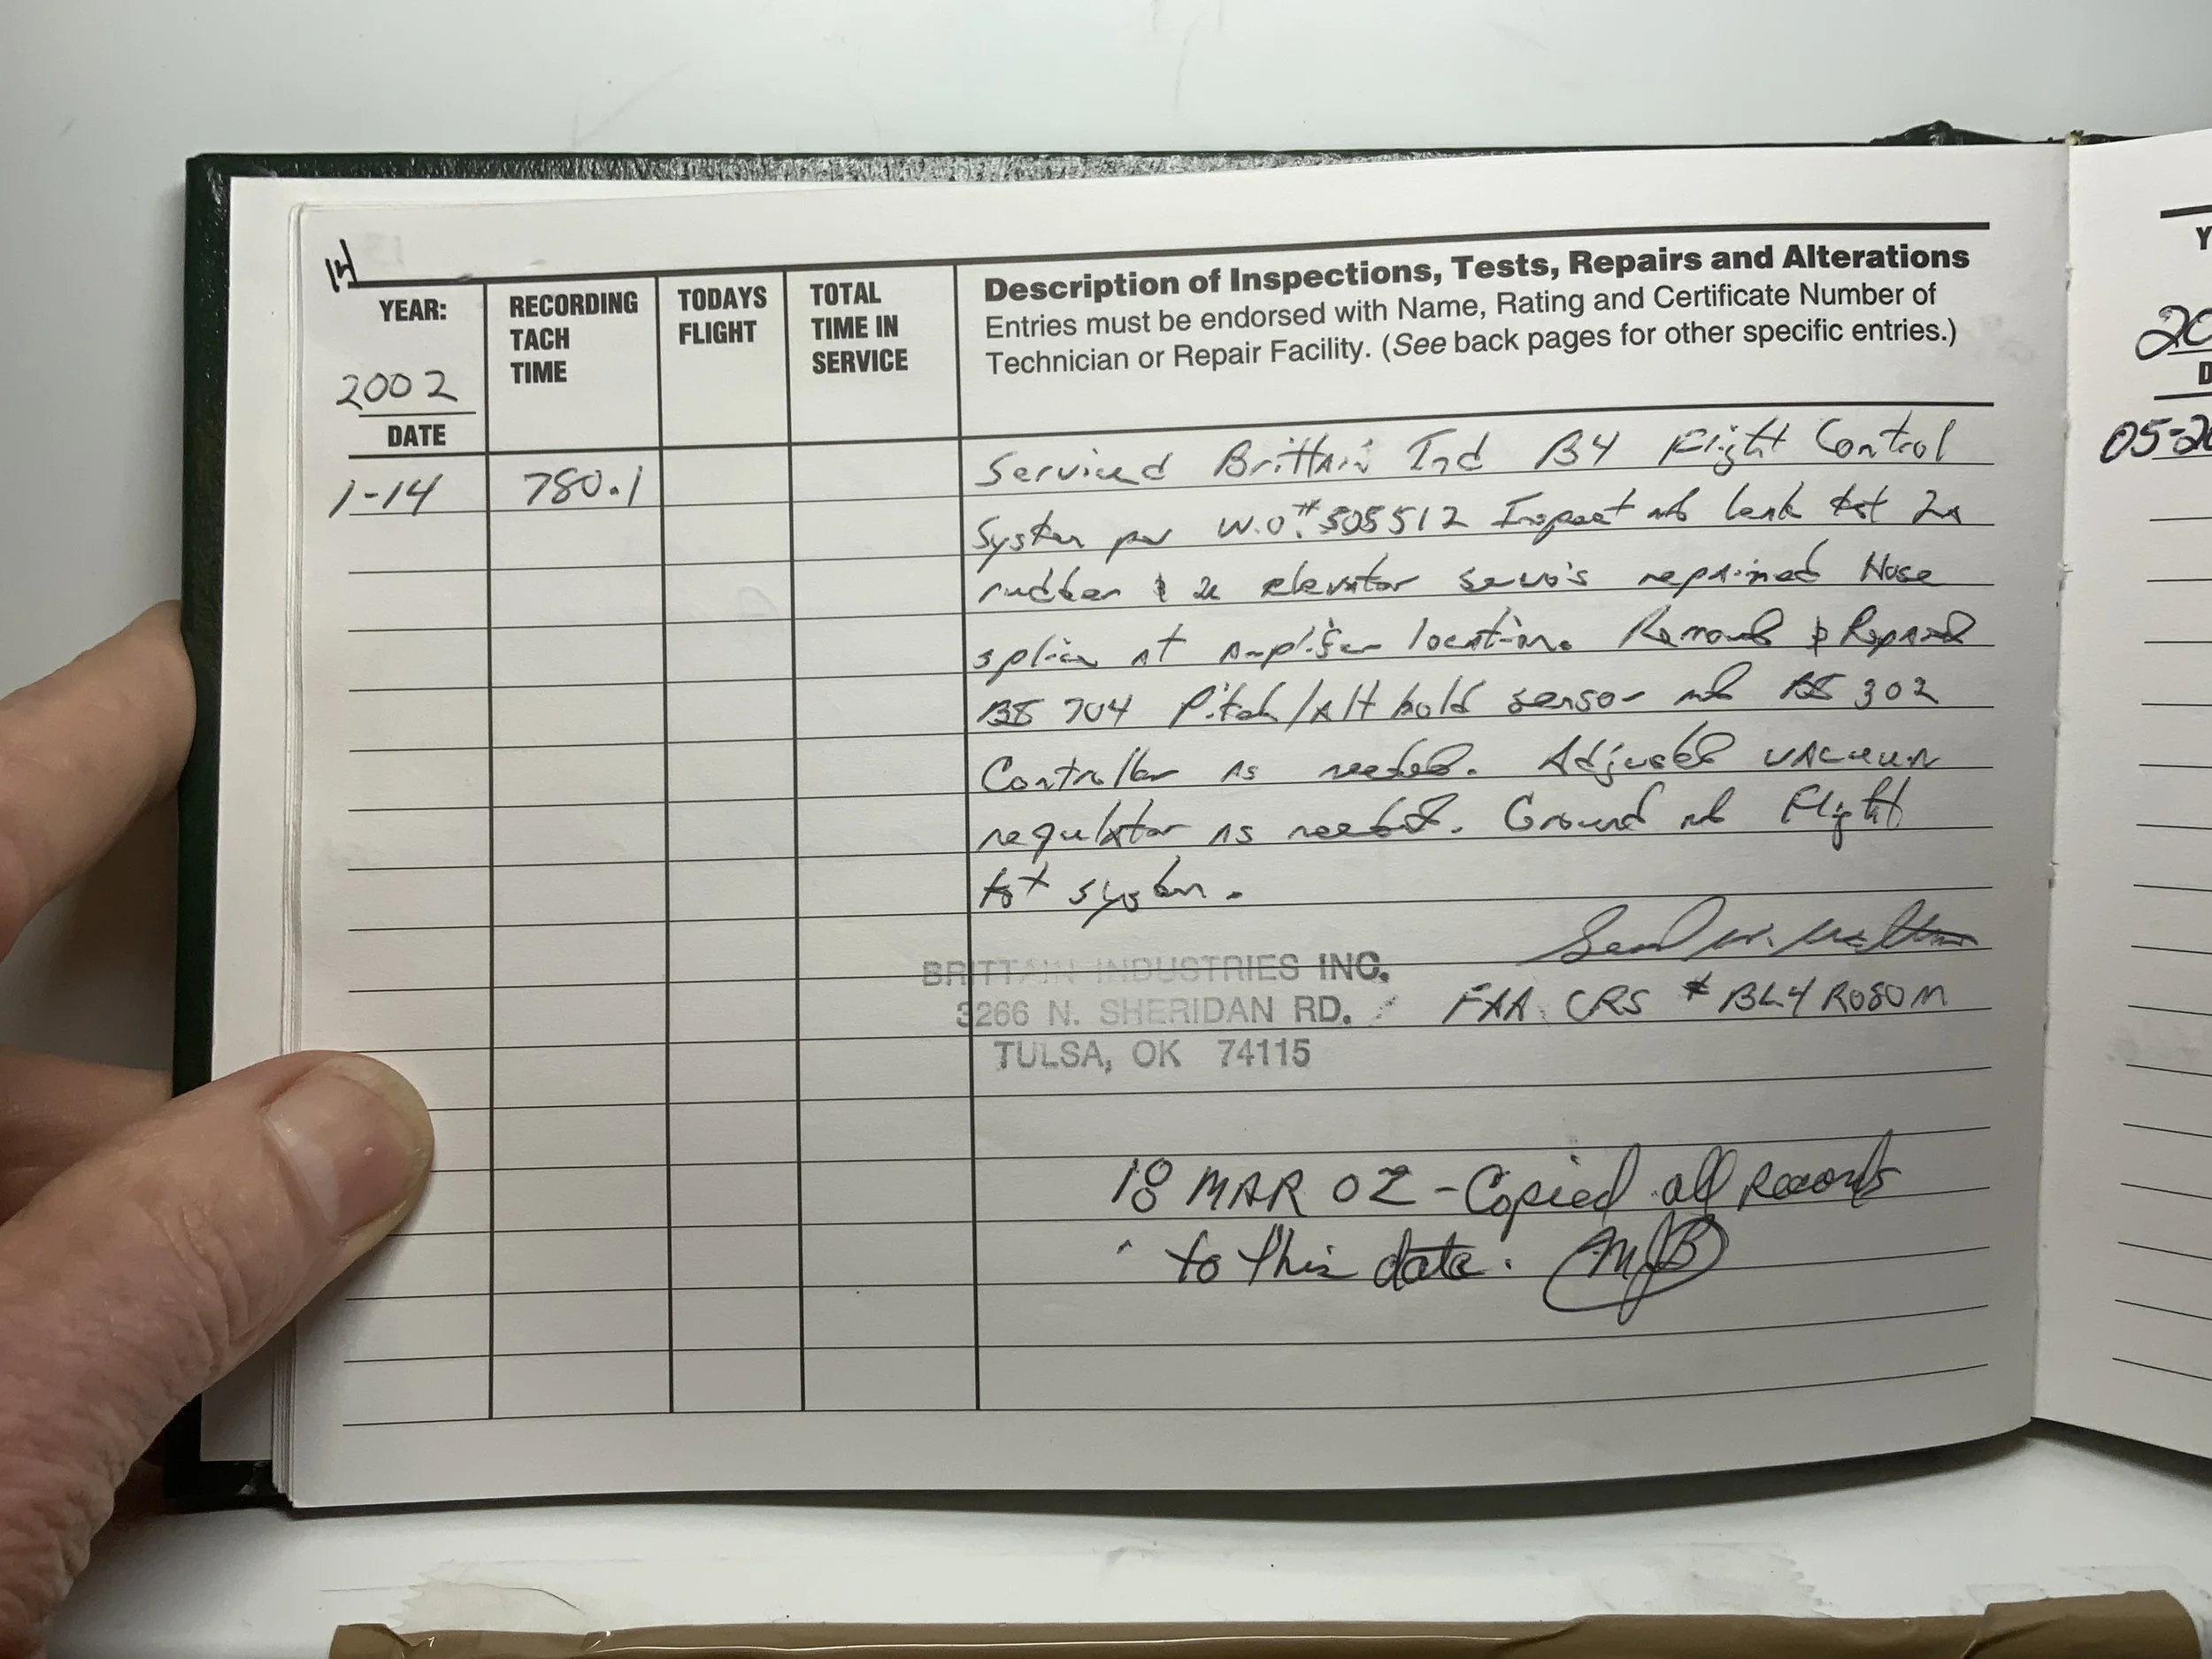 14
YEAR:
2002
DATE
RECORDING
TACH
TIME
TODAYS
FLIGHT
TOTAL
TIME IN
SERVICE
Description of Inspections, Tests, Repairs and Alterations
Entries must be endorsed with Name, Rating and Certificate Number of
Technician or Repair Facility. (See back pages for other specific entries.)
1-14
780.1
Serviced Brittain Ind B4 Flight Control
System per W.O.# 505512 Inspect and leak test 2x
rudder & 2x elevator servo's repaired Hose
splice at Amplifier location. Removed & Repaired
704 Pitch/Alt hold sensor and 302
Controller as needed. Adjusted vacuum
regulator as needed. Ground and Flight
test system.
BRITTAIN INDUSTRIES INC.
3266 N. SHERIDAN RD.
TULSA, OK 74115
FAA CRS # BL4R080M
18 MAR 02 - Copied all records
to this date. MJB
Y
20
D
05-20